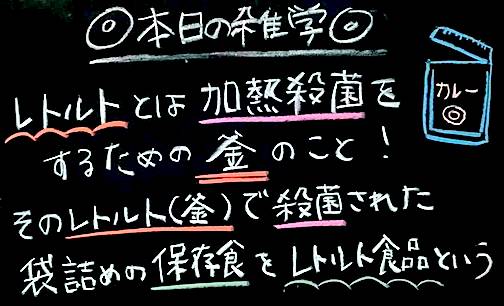 ◎本日の雑学◎
レトルトとは加熱殺菌を
するための釜のこと！
そのレトルト(釜)で殺菌された
袋詰めの保存食をレトルト食品という
カレー